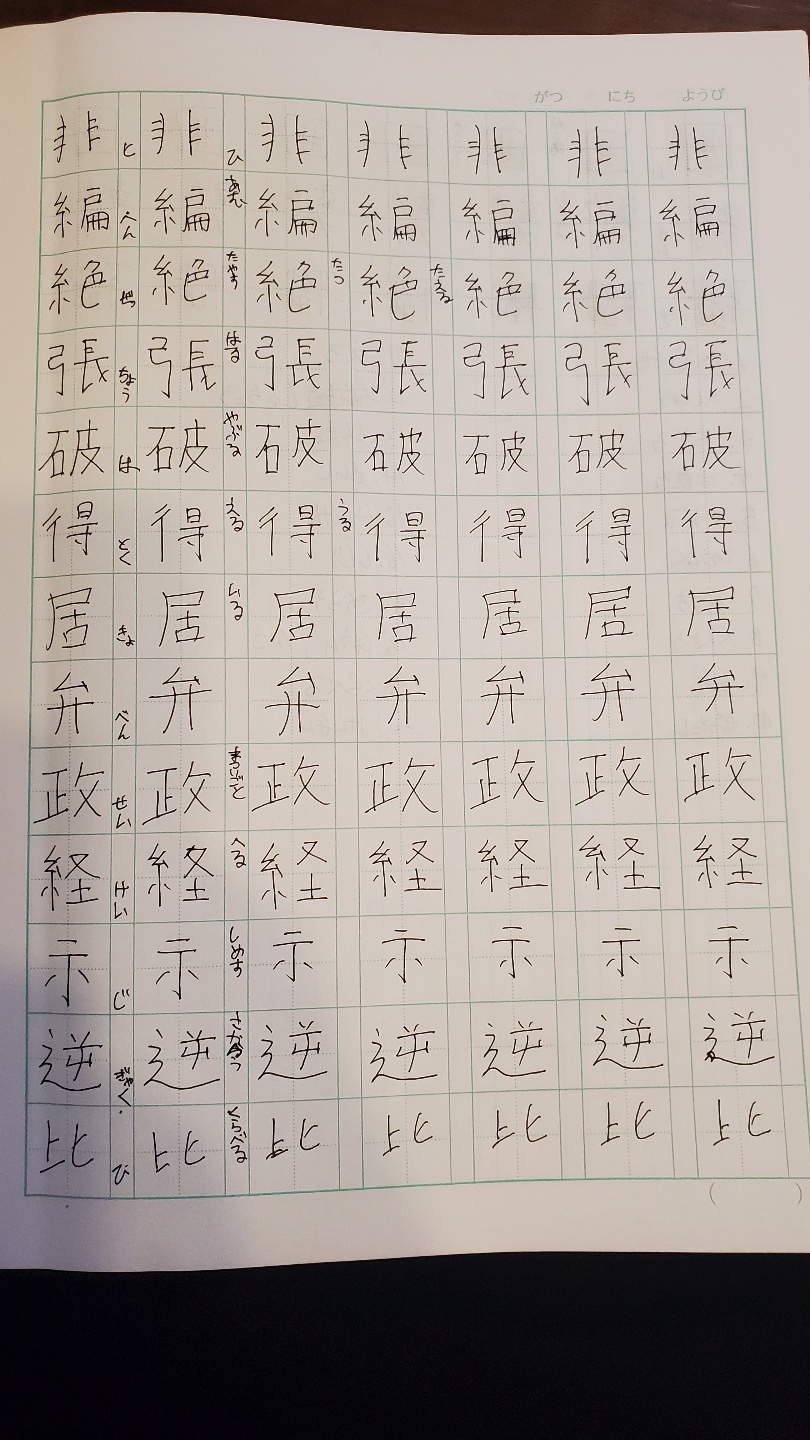 がつ にち ようび
非 と 非 ひ 非 非 非 非 非
編 へん 編 あむ 編 編 編 編 編
絶 ぜつ 絶 たやす 絶 たつ 絶 たえる 絶 絶 絶
張 ちょう 張 はる 張 張 張 張 張
破 は 破 やぶる 破 破 破 破 破
得 とく 得 える 得 うる 得 得 得 得
居 きょ 居 いる 居 居 居 居 居
弁 べん 弁 弁 弁 弁 弁 弁
政 せい 政 政 政 政 政 政
経 けい 経 へる 経 経 経 経 経
示 じ 示 しめす 示 示 示 示 示
逆 ぎゃく 逆 逆 逆 逆 逆 逆
比 ひ 比 くらべる 比 比 比 比 比
( )